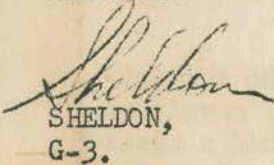 Sheldon
SHELDON,
G-3.